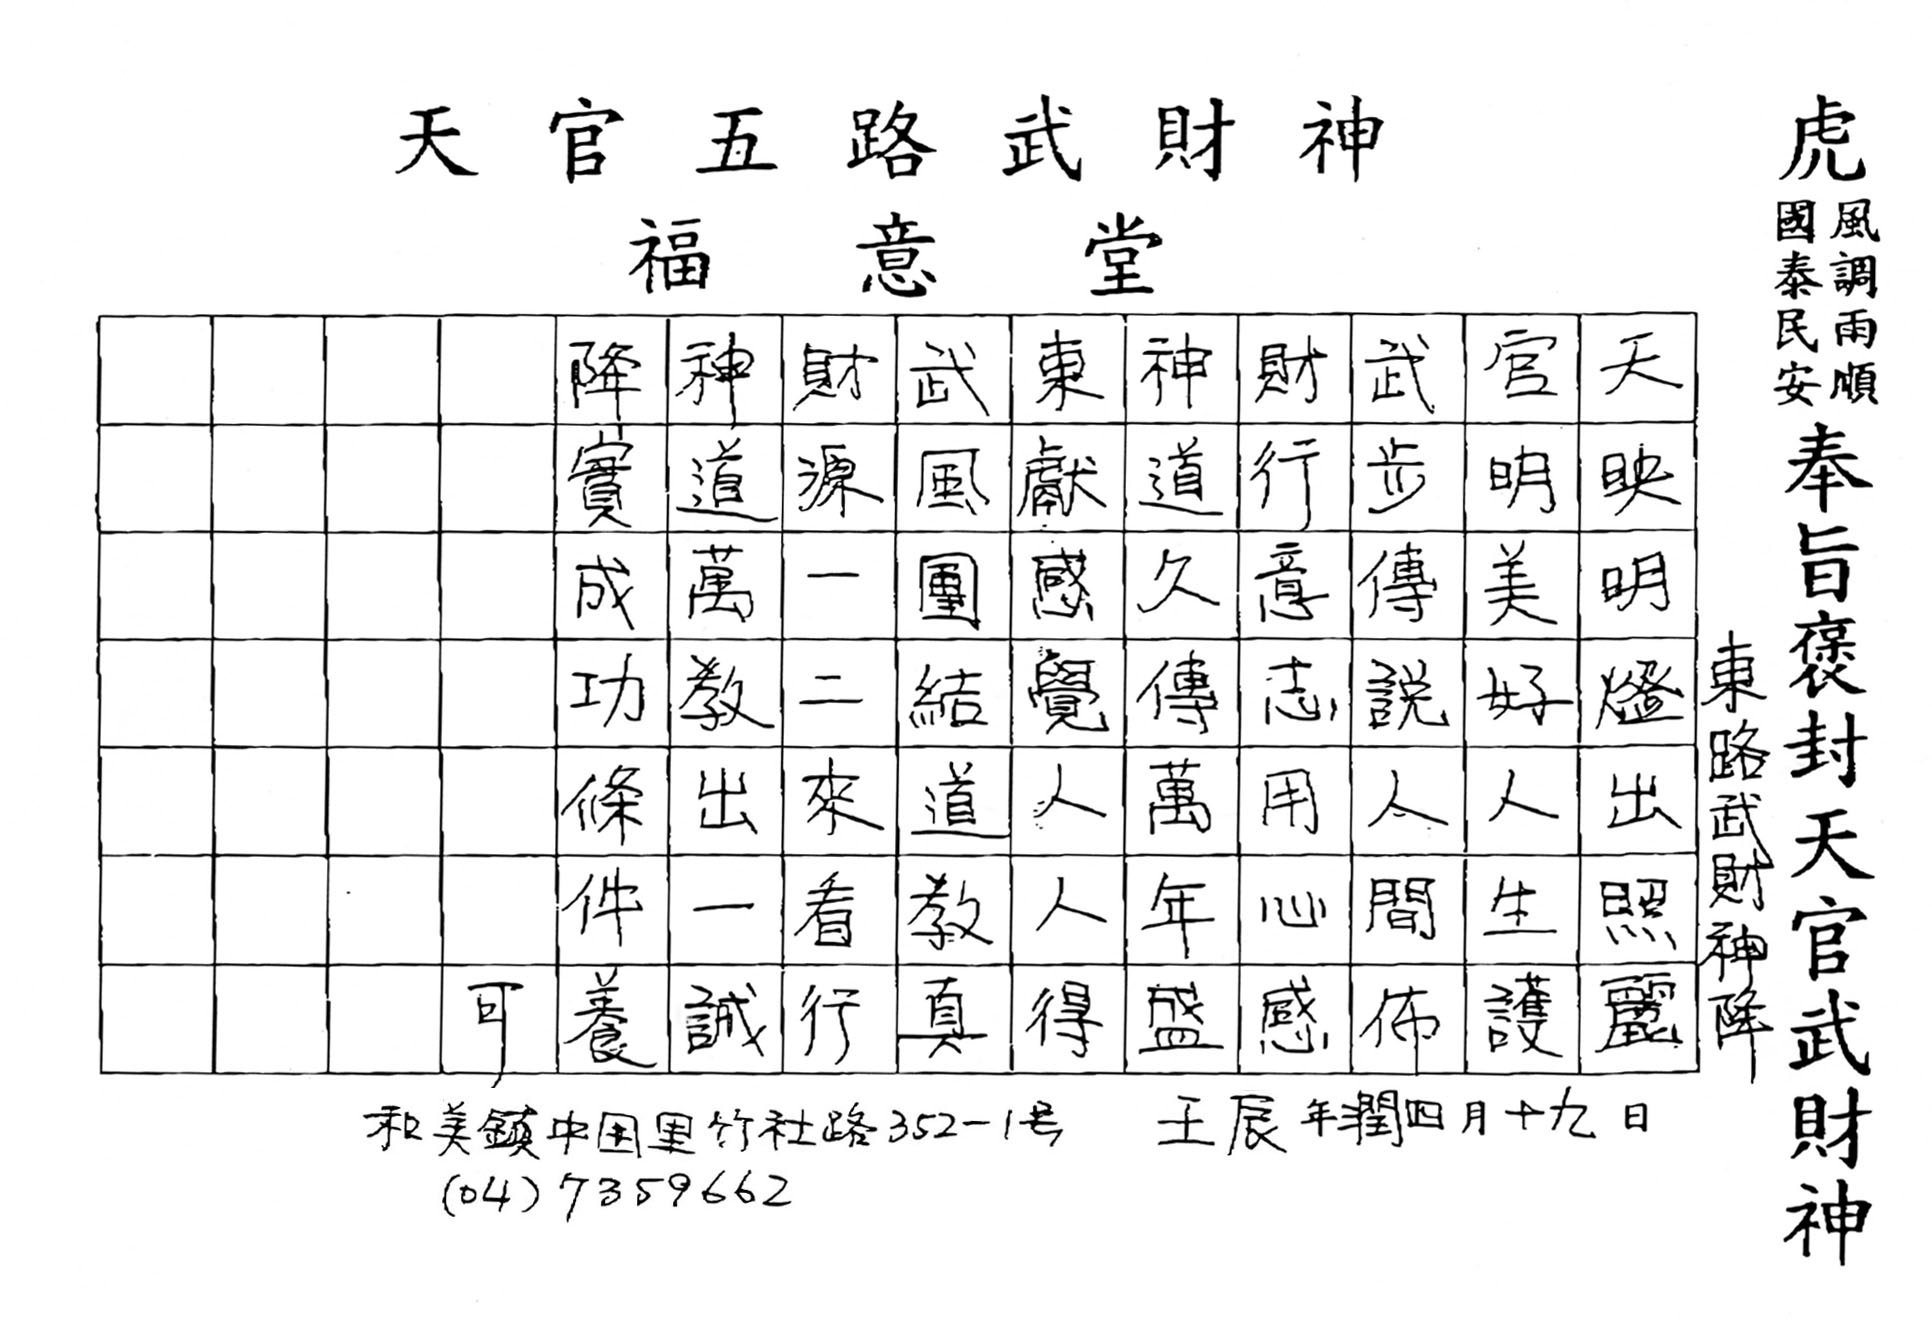 天官五路武財神
福意堂
虎
風調雨順
國泰民安
奉旨褒封天官武財神
東路武財神降
天映明燈出照麗
官明美好人生護
武步傳說人間佈
財行意志用心感
神道久傳萬年盛
東獻感覺人人得
武風團結道教真
財源一二來看行
神道萬教出一誠
降實成功條件養
可
壬辰年潤四月十九日
和美鎮中囯里竹社路352-1号
(04)7359662